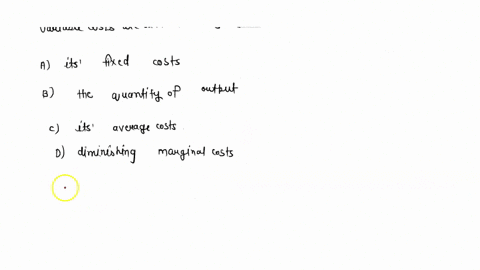 Variable costs are
A) its' fixed costs
B) the quantity of output
C) its' average costs.
D) diminishing marginal costs